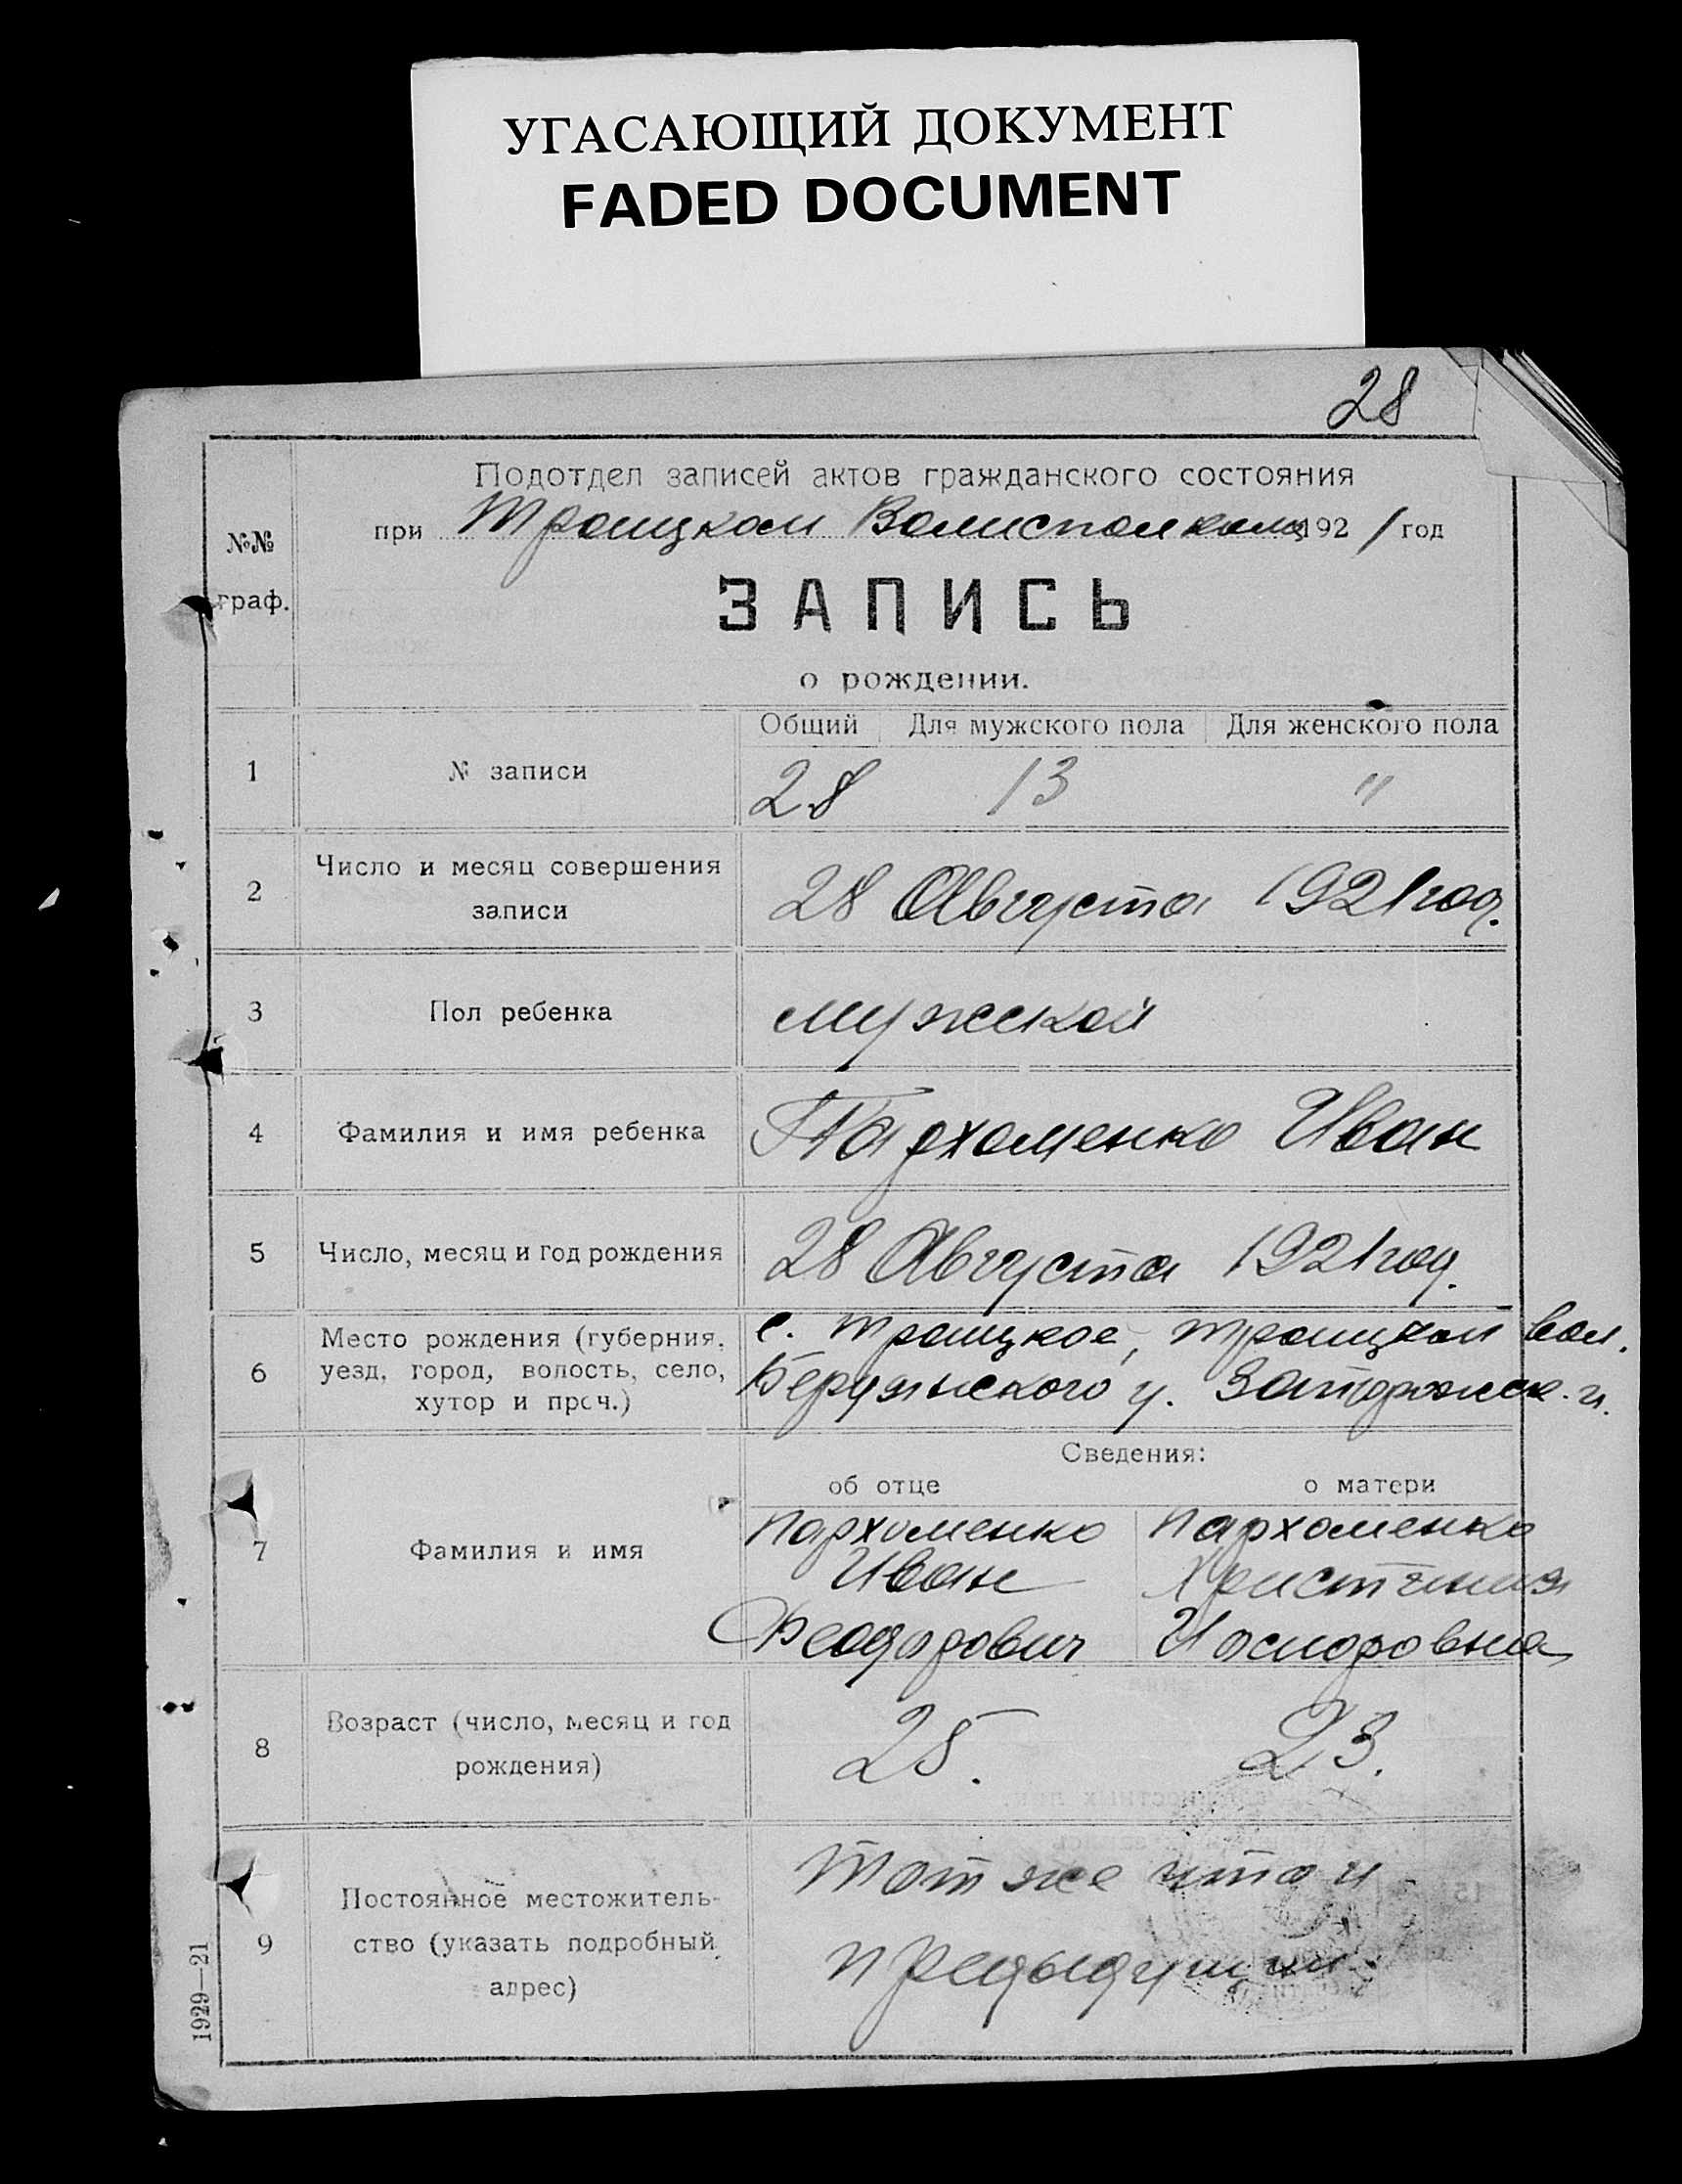 УГАСАЮЩИЙ ДОКУМЕНТ
FADED DOCUMENT
28
№№ граф.
Подотдел записей актов гражданского состояния
при Троицком Волисполкоме 1921 год
ЗАПИСЬ
о рождении.
Общий Для мужского пола Для женского пола
1 № записи 28 13 "
2 Число и месяц совершения
записи
28 Августа 1921 год.
3 Пол ребенка мужской
4 Фамилия и имя ребенка Пархоменко Иван
5 Число, месяц и год рождения 28 Августа 1921 год.
6 Место рождения (губерния,
уезд, город, волость, село,
хутор и проч.)
с. Троицкое, Троицкой вол.
у. Запорожск. г.
Сведения:
об отце о матери
7 Фамилия и имя
Пархоменко Пархоменко
Иван Христиния
Феодорович
8 Возраст (число, месяц и год
рождения)
25. 23.
9 Постоянное местожитель-
ство (указать подробный
адрес)
Тот же что и
предыдущий
1929—21